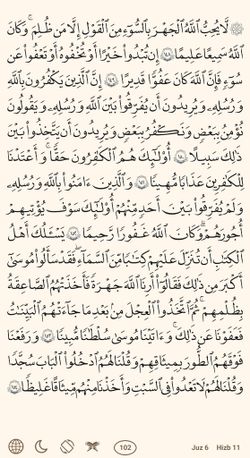 ۞ لَّا يُحِبُّ ٱللَّهُ ٱلْجَهْرَ بِٱلسُّوٓءِ مِنَ ٱلْقَوْلِ إِلَّا مَن ظُلِمَ ۚ وَكَانَ
ٱللَّهُ سَمِيعًا عَلِيمًا ١٤٨ إِن تُبْدُوا۟ خَيْرًا أَوْ تُخْفُوهُ أَوْ تَعْفُوا۟ عَن
سُوٓءٍ فَإِنَّ ٱللَّهَ كَانَ عَفُوًّا قَدِيرًا ١٤٩ إِنَّ ٱلَّذِينَ يَكْفُرُونَ بِٱللَّهِ
وَرُسُلِهِۦ وَيُرِيدُونَ أَن يُفَرِّقُوا۟ بَيْنَ ٱللَّهِ وَرُسُلِهِۦ وَيَقُولُونَ
نُؤْمِنُ بِبَعْضٍ وَنَكْفُرُ بِبَعْضٍ وَيُرِيدُونَ أَن يَتَّخِذُوا۟ بَيْنَ
ذَٰلِكَ سَبِيلًا ١٥٠ أُو۟لَـٰٓئِكَ هُمُ ٱلْكَـٰفِرُونَ حَقًّا ۚ وَأَعْتَدْنَا
لِلْكَـٰفِرِينَ عَذَابًا مُّهِينًا ١٥١ وَٱلَّذِينَ ءَامَنُوا۟ بِٱللَّهِ وَرُسُلِهِۦ
وَلَمْ يُفَرِّقُوا۟ بَيْنَ أَحَدٍ مِّنْهُمْ أُو۟لَـٰٓئِكَ سَوْفَ يُؤْتِيهِمْ
أُجُورَهُمْ ۗ وَكَانَ ٱللَّهُ غَفُورًا رَّحِيمًا ١٥٢ يَسْـَٔلُكَ أَهْلُ
ٱلْكِتَـٰبِ أَن تُنَزِّلَ عَلَيْهِمْ كِتَـٰبًا مِّنَ ٱلسَّمَآءِ ۚ فَقَدْ سَأَلُوا۟ مُوسَىٰٓ
أَكْبَرَ مِن ذَٰلِكَ فَقَالُوٓا۟ أَرِنَا ٱللَّهَ جَهْرَةً فَأَخَذَتْهُمُ ٱلصَّـٰعِقَةُ
بِظُلْمِهِمْ ۚ ثُمَّ ٱتَّخَذُوا۟ ٱلْعِجْلَ مِنۢ بَعْدِ مَا جَآءَتْهُمُ ٱلْبَيِّنَـٰتُ
فَعَفَوْنَا عَن ذَٰلِكَ ۚ وَءَاتَيْنَا مُوسَىٰ سُلْطَـٰنًا مُّبِينًا ١٥٣ وَرَفَعْنَا
فَوْقَهُمُ ٱلطُّورَ بِمِيثَـٰقِهِمْ وَقُلْنَا لَهُمُ ٱدْخُلُوا۟ ٱلْبَابَ سُجَّدًا
وَقُلْنَا لَهُمْ لَا تَعْدُوا۟ فِى ٱلسَّبْتِ وَأَخَذْنَا مِنْهُم مِّيثَـٰقًا غَلِيظًا ١٥٤
102 Juz 6 Hizb 11